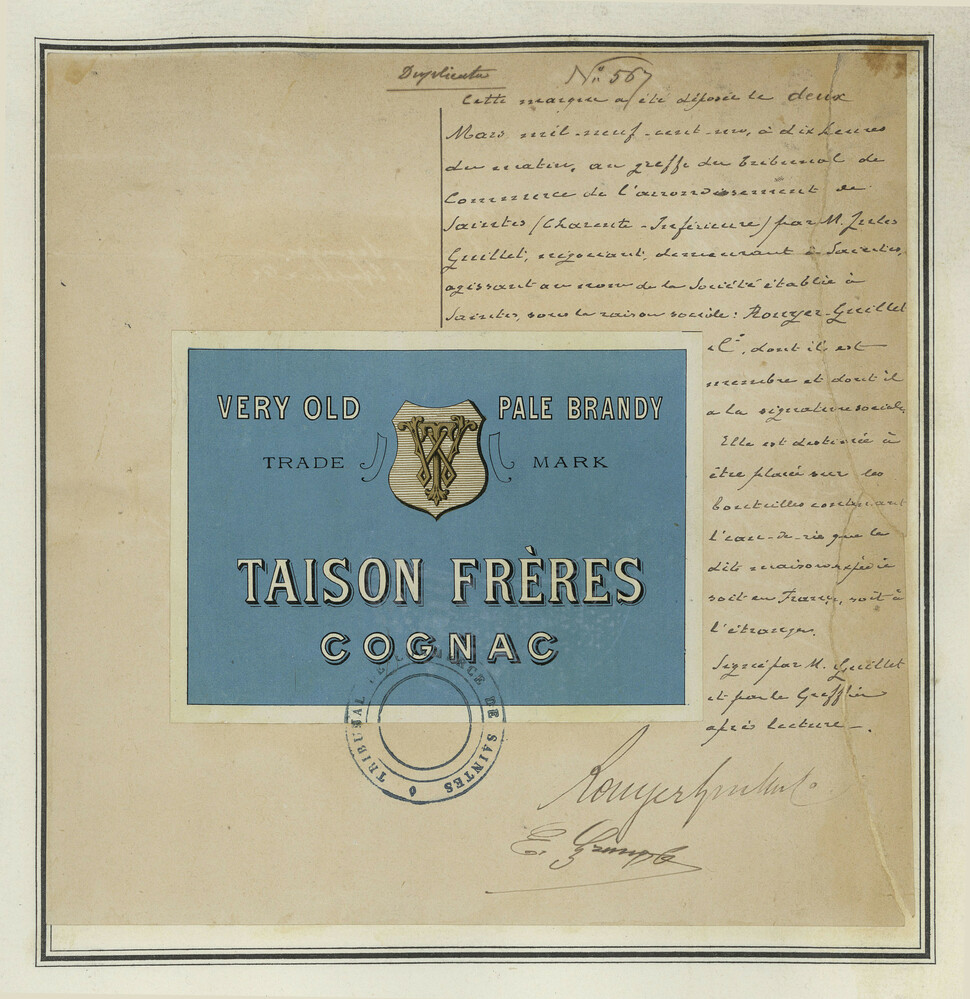 Duplicata
No 567
Cette marque a été déposée le deux
Mars mil-neuf-cent-un, à dix heures
du matin, au greffe du Tribunal de
Commerce de l'arrondissement de
Saintes (Charente-Inférieure) par M. Jules
Guillet, négociant, demeurant à Saintes,
agissant au nom de la Société établie à
Saintes, sous la raison sociale: Rouyer-Guillet
& Cie, dont il est
membre et dont il
a la signature sociale.
Elle est destinée à
être placée sur les
bouteilles contenant
l'eau-de-vie que la
dite maison expédie
soit en France, soit à
l'étranger.
Signé par M. Guillet
et par le Greffier
après lecture.
VERY OLD PALE BRANDY
TRADE MARK
TAISON FRÈRES
COGNAC
TRIBUNAL DE COMMERCE DE SAINTES
Rouyer Guillet & Co